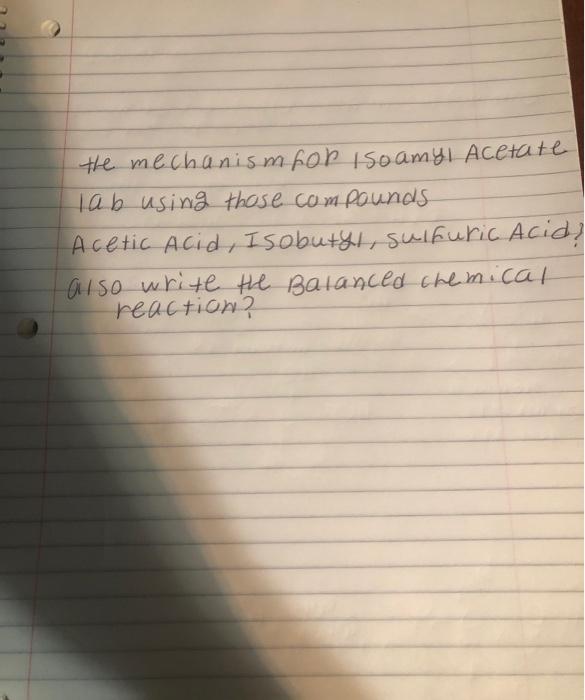 the mechanism for isoamyl Acetate
lab using those compounds
Acetic Acid, Isobutyl, sulfuric Acid?
also write the Balanced chemical
reaction?